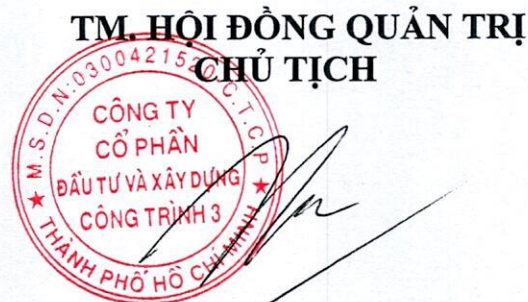 TM. HỘI ĐỒNG QUẢN TRỊ
CHỦ TỊCH
M.S.D.N:0300421520-C.T.C.P
CÔNG TY
CỔ PHẦN
ĐẦU TƯ VÀ XÂY DỰNG
CÔNG TRÌNH 3
THÀNH PHỐ HỒ CHÍ MINH